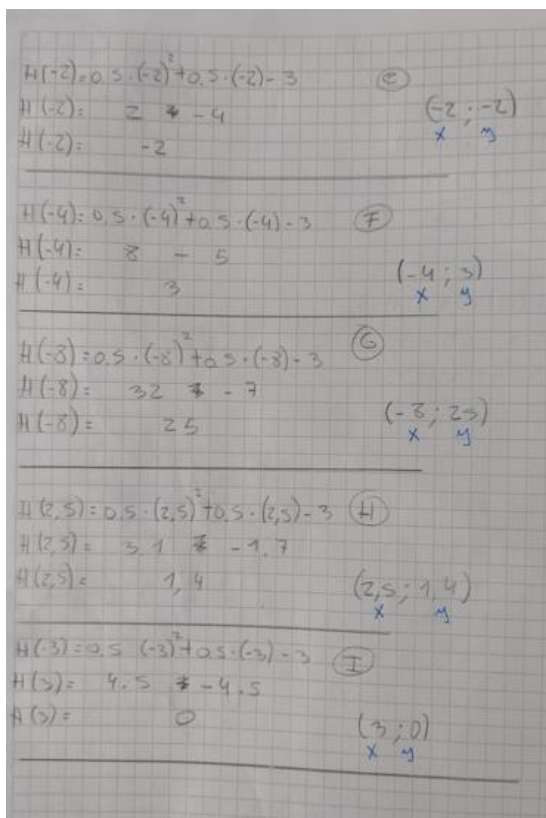 H(-2)=0.5·(-2)²+0.5·(-2)-3 (e)
H(-2): 2 -4 (-2 ; -2)
x y
H(-2): -2
H(-4)=0.5·(-4)²+0.5·(-4)-3 (F)
H(-4): 8 - 5
H(-4): 3 (-4 ; 3)
x y
H(-8)=0.5·(-8)²+0.5·(-8)-3 (G)
H(-8)= 32 -7
H(-8)= 25 (-8 ; 25)
x y
H(2,5)=0.5·(2,5)²+0.5·(2,5)-3 (H)
H(2,5)= 3.1 -1.7
H(2,5)= 1,4 (2,5 ; 1,4)
x y
H(-3)=0.5 (-3)²+0.5·(-3)-3 (I)
H(3)= 4.5 -4.5
H(3)= 0 (3 ; 0)
x y